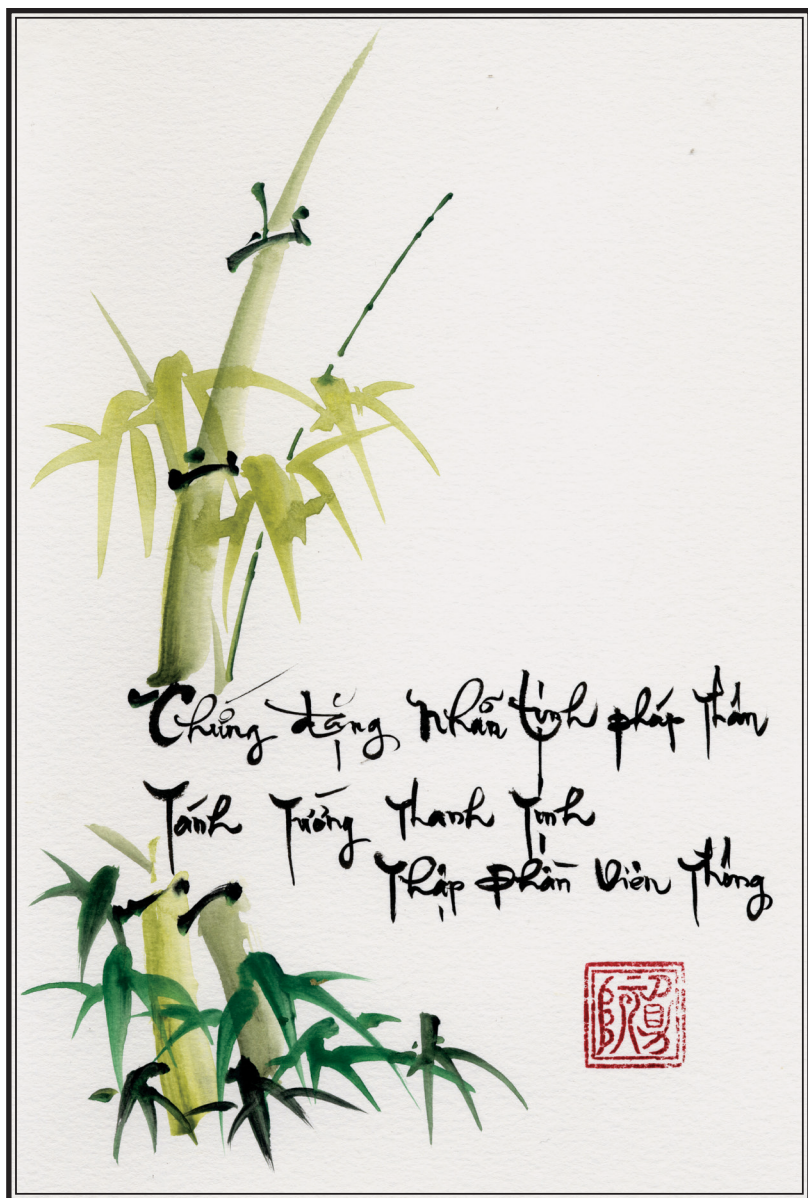 Chứng đặng Nhẫn tịnh pháp thân
Tánh Tướng Thanh Tịnh
Thập Phần Viên Thông